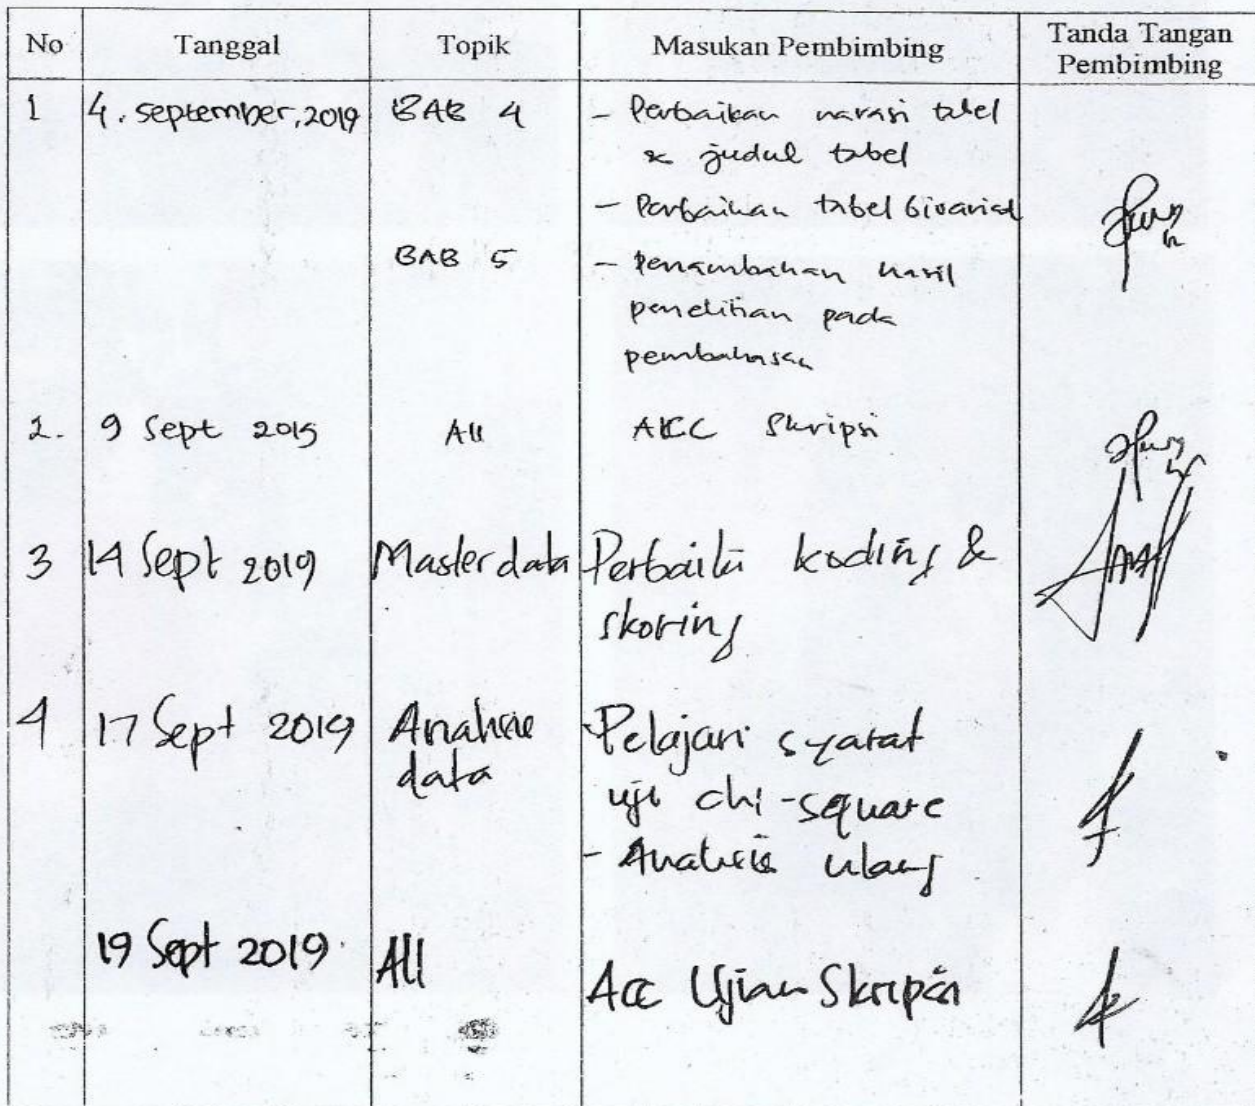 No Tanggal Topik Masukan Pembimbing Tanda Tangan Pembimbing
1 4. september, 2019 BAB 4 - Perbaikan narasi tabel
& judul tabel
- Perbaikan tabel bivariat
BAB 5 - Penambahan hasil
penelitian pada
pembahasan
2. 9 Sept 2019 All ACC Skripsi
3 14 Sept 2019 Master data Perbaiki koding &
skoring
4 17 Sept 2019 Analisis data - Pelajari syarat
uji chi-square
- Analisis ulang
19 Sept 2019 All Acc Ujian Skripsi